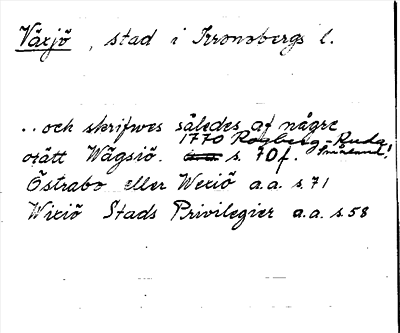 Växjö, stad i Kronobergs l.
..och skrifwes således af någre
1770 Rogberg - Ruda
orätt Wägsiö. a.a. s. 70f. Småland!
Östrabo eller Wexiö a.a. s. 71
Wixiö Stads Privilegier a.a. s. 58